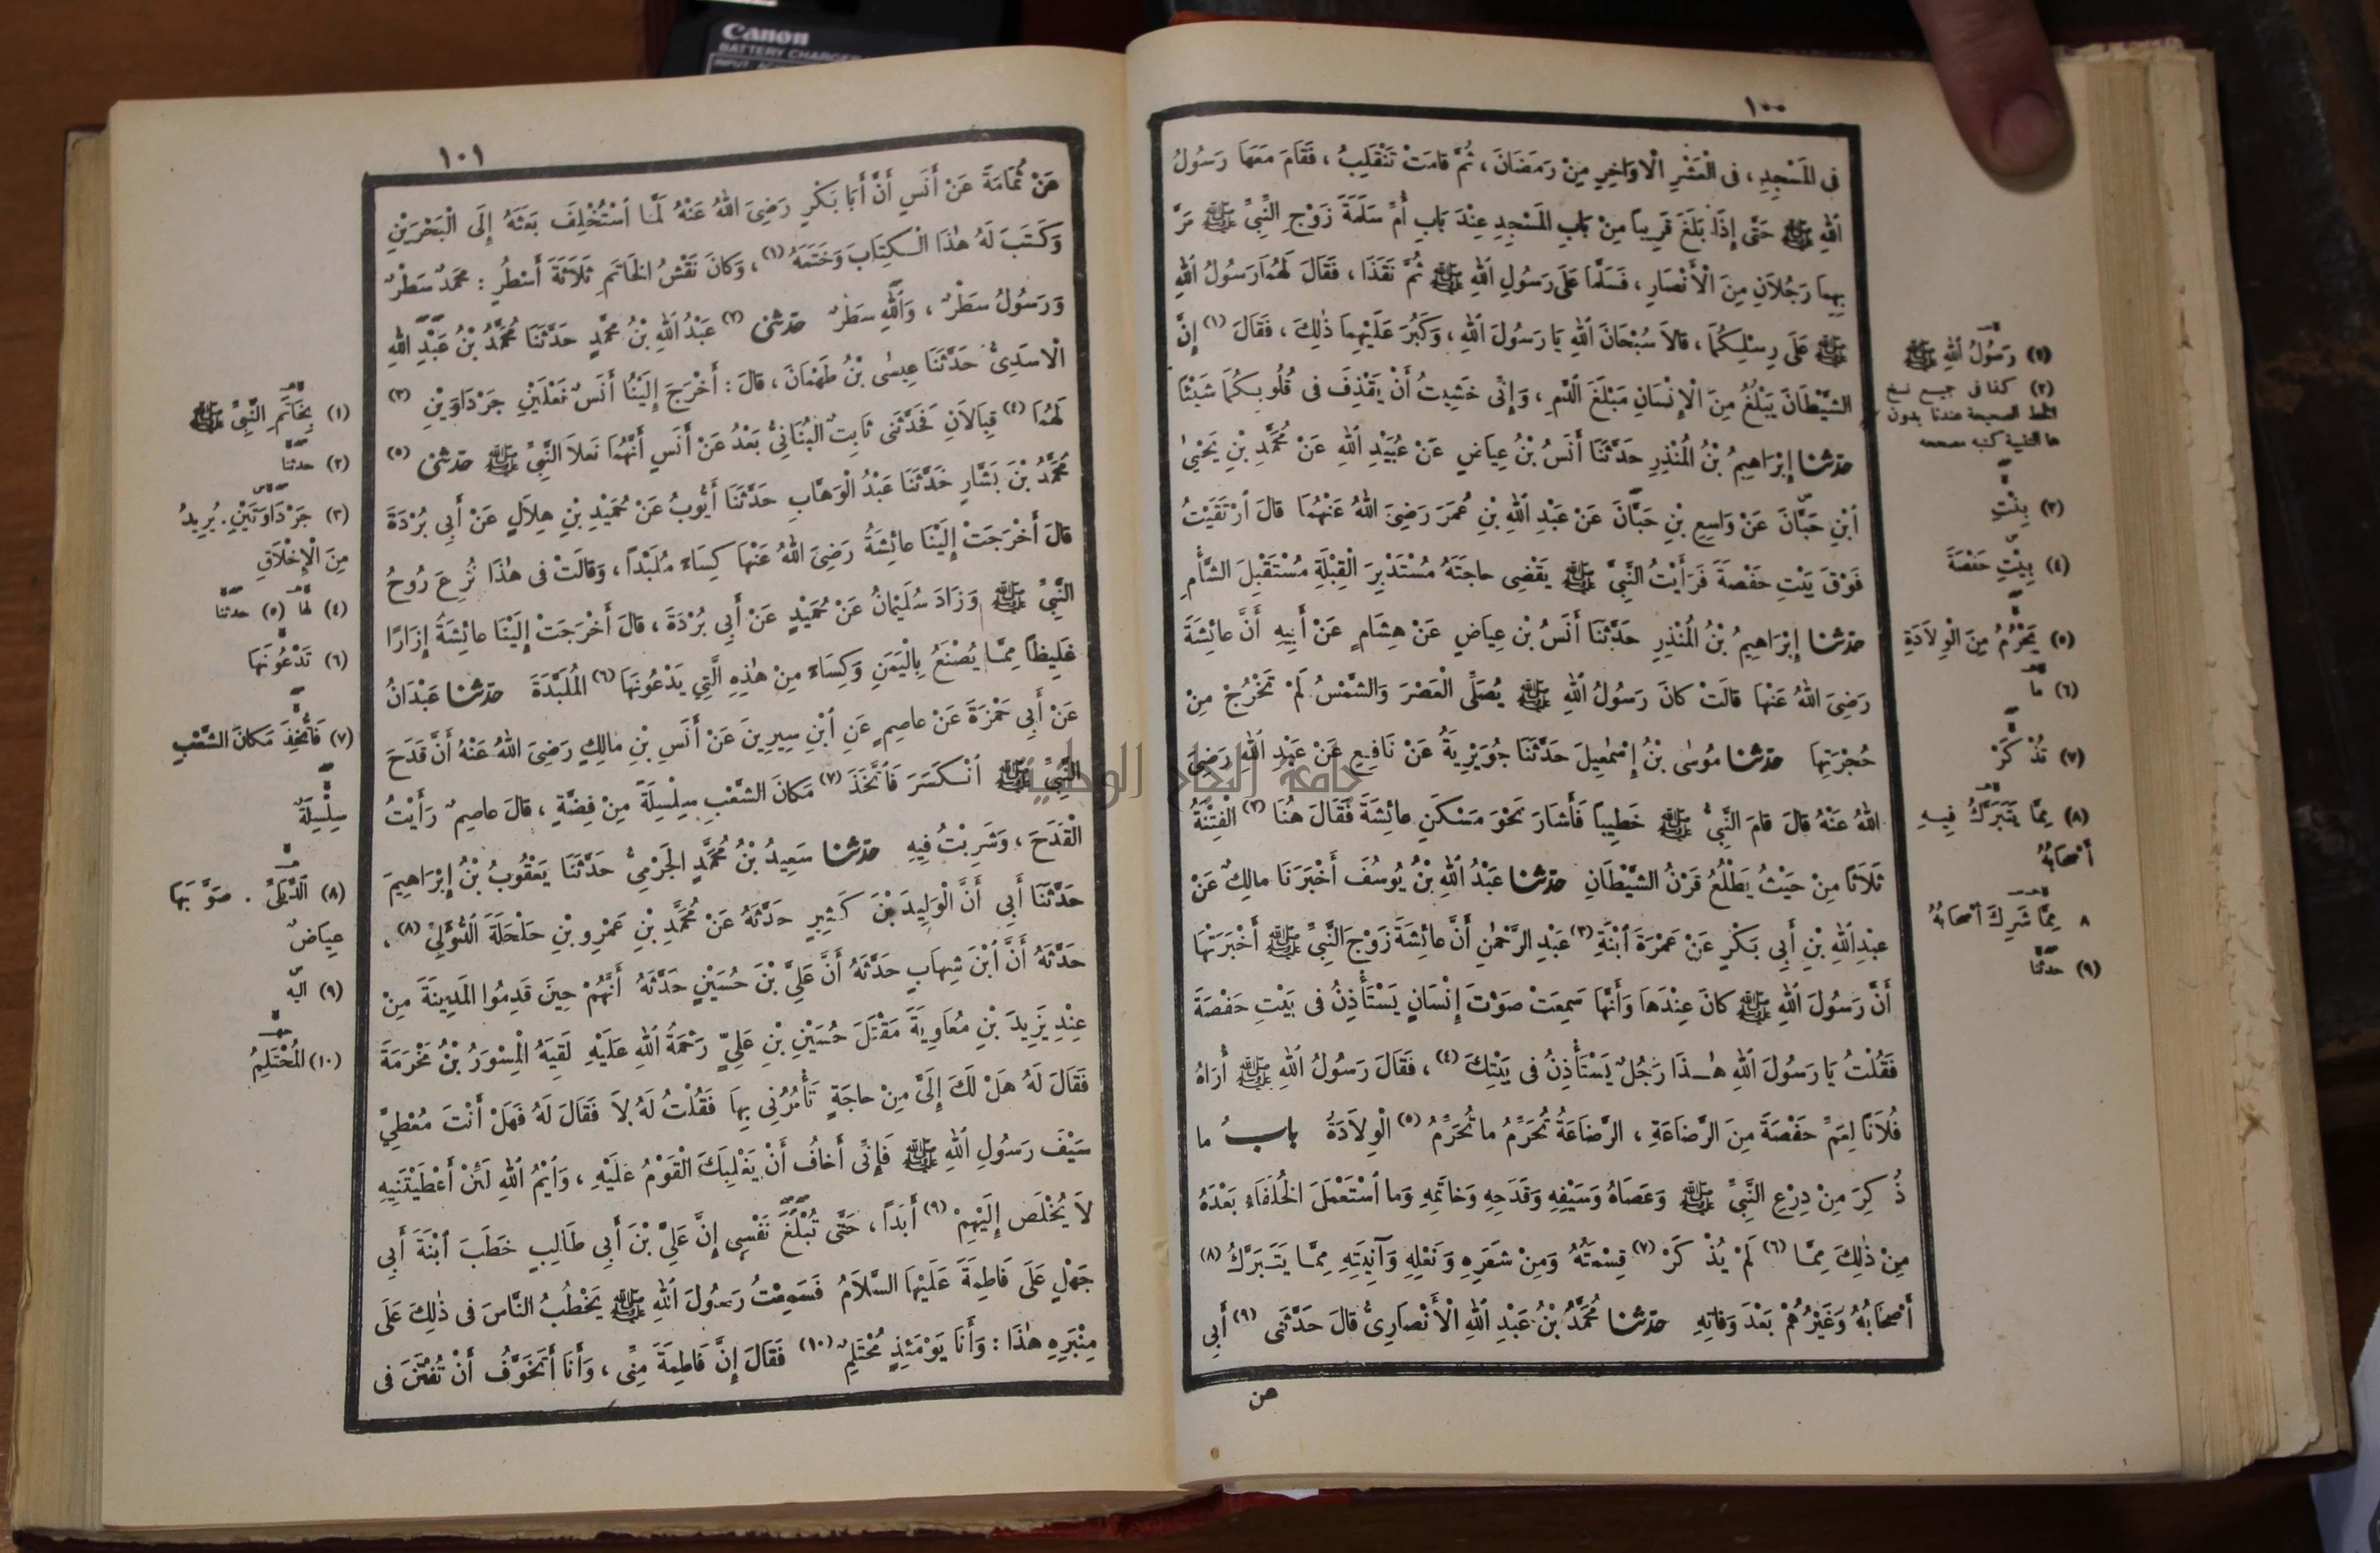 Canon
BATTERY CHARGER
١٠٠
فِى الْمَسْجِدِ ، فِى الْعَشْرِ الْاوَاخِرِ مِنْ رَمَضَانَ ، ثُمَّ قامَتْ تَنْقَلِبُ ، فَقَامَ مَعَهَا رَسُولُ
اللهِ ﷺ حَتَّى إِذَا بَلَغَ قَرِيباً مِنْ بَابِ الْمَسْجِدِ عِنْدَ بَابِ أُمِّ سَلَمَةَ زَوْجِ النَّبِيِّ ﷺ مَرَّ
بِهِمَا رَجُلاَنِ مِنَ الْأَنْصَارِ ، فَسَلَّمَا عَلَى رَسُولِ اللهِ ﷺ ثُمَّ نَفَذَا ، فَقَالَ لَهُمَا رَسُولُ اللهِ
ﷺ عَلَى رِسْلِكُمَا ، قالاَ سُبْحَانَ اللهِ يَا رَسُولَ اللهِ ، وَكَبُرَ عَلَيْهِمَا ذٰلِكَ ، فَقَالَ (١) إِنَّ
الشَّيْطَانَ يَبْلُغُ مِنَ الْإِنْسَانِ مَبْلَغَ الدَّمِ ، وَإِنِّى خَشِيتُ أَنْ يَقْذِفَ فى قُلُوبِكُمَا شَيْئاً
حدثنا إِبْرَاهِيمُ بْنُ الْمُنْذِرِ حَدَّثَنَا أَنَسُ بْنُ عِيَاضٍ عَنْ عُبَيْدِ اللهِ عَنْ مُحَمَّدِ بْنِ يَحْيىٰ
ابْنِ حَبَّانَ عَنْ وَاسِعِ بْنِ حَبَّانَ عَنْ عَبْدِ اللهِ بْنِ عُمَرَ رَضِىَ اللهُ عَنْهُمَا قالَ ارْتَقَيْتُ
فَوْقَ بَيْتِ حَفْصَةَ فَرَأَيْتُ النَّبِيَّ ﷺ يَقْضِى حاجَتَهُ مُسْتَدْبِرَ الْقِبْلَةِ مُسْتَقْبِلَ الشَّأْمِ
حدثنا إِبْرَاهِيمُ بْنُ الْمُنْذِرِ حَدَّثَنَا أَنَسُ بْنُ عِيَاضٍ عَنْ هِشَامٍ عَنْ أَبِيهِ أَنَّ عائِشَةَ
رَضِىَ اللهُ عَنْهَا قالَتْ كانَ رَسُولُ اللهِ ﷺ يُصَلِّى الْعَصْرَ وَالشَّمْسُ لَمْ تَخْرُجْ مِنْ
حُجْرَتِهَا حدثنا مُوسٰى بْنُ إِسْمٰعِيلَ حَدَّثَنَا جُوَيْرِيَةُ عَنْ نَافِعٍ عَنْ عَبْدِ اللهِ رَضِىَ
اللهُ عَنْهُ قالَ قامَ النَّبِيُّ ﷺ خَطِيباً فَأَشَارَ نَحْوَ مَسْكَنِ عائِشَةَ فَقَالَ هُنَا (٢) الْفِتْنَةُ
ثَلَاثًا مِنْ حَيْثُ يَطْلُعُ قَرْنُ الشَّيْطَانِ حدثنا عَبْدُ اللهِ بْنُ يُوسُفَ أَخْبَرَنَا مالِكٌ عَنْ
عبْدِ اللهِ بْنِ أَبِى بَكْرٍ عَنْ عَمْرَةَ ابْنَةِ (٣) عَبْدِ الرَّحْمٰنِ أَنَّ عائِشَةَ زَوْجَ النَّبِيِّ ﷺ أَخْبَرَتْهَا
أَنَّ رَسُولَ اللهِ ﷺ كانَ عِنْدَهَا وَأَنَّهَا سَمِعَتْ صَوْتَ إِنْسَانٍ يَسْتَأْذِنُ فى بَيْتِ حَفْصَةَ
فَقُلْتُ يَا رَسُولَ اللهِ هٰذَا رَجُلٌ يَسْتَأْذِنُ فى بَيْتِكَ (٤) ، فَقَالَ رَسُولُ اللهِ ﷺ أُرَاهُ
فُلَانًا لِعَمِّ حَفْصَةَ مِنَ الرَّضَاعَةِ ، الرَّضَاعَةُ تُحَرِّمُ ما تُحَرِّمُ (٥) الْوِلَادَةُ بابُ ما
ذُكِرَ مِنْ دِرْعِ النَّبِيِّ ﷺ وَعَصَاهُ وَسَيْفِهِ وَقَدَحِهِ وَخاتَمِهِ وَما اسْتَعْمَلَ الْخُلَفَاءُ بَعْدَهُ
مِنْ ذٰلِكَ مِمَّا (٦) لَمْ يُذْكَرْ (٧) قِسْمَتُهُ وَمِنْ شَعَرِهِ وَنَعْلِهِ وَآنِيَتِهِ مِمَّا يَتَبَرَّكُ (٨)
أَصْحَابُهُ وَغَيْرُهُمْ بَعْدَ وَفاتِهِ حدثنا مُحَمَّدُ بْنُ عَبْدِ اللهِ الْأَنْصَارِىُّ قالَ حَدَّثَنى (٩) أَبِى
عن
(١) رَسُولُ اللهِ ﷺ
(٢) كذا فى جميع نسخ
الخط الصحيحة عندنا بدون
ها التنبيه كتبه مصححه
(٣) بِنْتِ
(٤) بِيْتِ حَفْصَةَ
(٥) يَحْرُمُ مِنَ الْوِلَادَةِ
(٦) ما
(٧) تُذْكَرْ
(٨) مِمَّا يَتَبَرَّكُ فِيهِ
أَصْحَابُهُ
٨ مِمَّا شَرِكَ أصحابُهُ
(٩) حدثنا
١٠١
عَنْ ثُمَامَةَ عَنْ أَنَسٍ أَنَّ أَبَا بَكْرٍ رَضِىَ اللهُ عَنْهُ لَمَّا اسْتُخْلِفَ بَعَثَهُ إِلَى الْبَحْرَيْنِ
وَكَتَبَ لَهُ هٰذَا الْكِتَابَ وَخَتَمَهُ (١) ، وَكانَ نَقْشُ الْخَاتَمِ ثَلَاثَةَ أَسْطُرٍ : مُحَمَّدٌ سَطْرٌ
وَرَسُولُ سَطْرٌ ، وَاللهِ سَطْرٌ حدثنى (٢) عَبْدُ اللهِ بْنُ مُحَمَّدٍ حَدَّثَنَا مُحَمَّدُ بْنُ عَبْدِ اللهِ
الْاسَدِىُّ حَدَّثَنَا عِيسٰى بْنُ طَهْمَانَ ، قالَ : أَخْرَجَ إِلَيْنَا أَنَسٌ نَعْلَيْنِ جَرْدَاوَيْنِ (٣)
لَهُمَا (٤) قِبَالَانِ فَحَدَّثَنى ثَابِتٌ الْبُنَانِيُّ بَعْدُ عَنْ أَنَسٍ أَنَّهُمَا نَعلَا النَّبِيِّ ﷺ حدثنى (٥)
مُحَمَّدُ بْنُ بَشَّارٍ حَدَّثَنَا عَبْدُ الْوَهَّابِ حَدَّثَنَا أَيُّوبُ عَنْ حُمَيْدِ بْنِ هِلَالٍ عَنْ أَبِى بُرْدَةَ
قالَ أَخْرَجَتْ إِلَيْنَا عائِشَةُ رَضِىَ اللهُ عَنْهَا كِسَاءً مُلَبَّدًا ، وَقالَتْ فى هٰذَا نُزِعَ رُوحُ
النَّبِيِّ ﷺ وَزَادَ سُلَيْمانُ عَنْ حُمَيْدٍ عَنْ أَبِى بُرْدَةَ ، قالَ أَخْرَجَتْ إِلَيْنَا عائِشَةُ إِزَارًا
غَلِيظًا مِمَّا يُصْنَعُ بِالْيَمَنِ وَكِسَاءً مِنْ هٰذِهِ الَّتِى يَدْعُونَهَا (٦) الْمُلَبَّدَةَ حدثنا عَبْدَانُ
عَنْ أَبِى حَمْزَةَ عَنْ عاصِمٍ عَنِ ابْنِ سِيرِينَ عَنْ أَنَسِ بْنِ مالِكٍ رَضِىَ اللهُ عَنْهُ أَنَّ قَدَحَ
النَّبِيِّ ﷺ انْكَسَرَ فَاتَّخَذَ (٧) مَكانَ الشَّعْبِ سِلْسِلَةً مِنْ فِضَّةٍ ، قالَ عاصِمٌ رَأَيْتُ
الْقَدَحَ ، وَشَرِبْتُ فِيهِ حدثنا سَعِيدُ بْنُ مُحَمَّدٍ الْجَرْمِيُّ حَدَّثَنَا يَعْقُوبُ بْنُ إِبْرَاهِيمَ
حَدَّثَنَا أَبِى أَنَّ الْوَلِيدَ بْنَ كَثِيرٍ حَدَّثَهُ عَنْ مُحَمَّدِ بْنِ عَمْرِو بْنِ حَلْحَلَةَ الدُّؤَلِيِّ (٨) ،
حَدَّثَهُ أَنَّ ابْنَ شِهَابٍ حَدَّثَهُ أَنَّ عَلِيَّ بْنَ حُسَيْنٍ حَدَّثَهُ أَنَّهُمْ حِينَ قَدِمُوا الْمَدِينَةَ مِنْ
عِنْدِ يَزِيدَ بْنِ مُعَاوِيَةَ مَقْتَلَ حُسَيْنِ بْنِ عَلِيٍّ رَحْمَةُ اللهِ عَلَيْهِ لَقِيَهُ الْمِسْوَرُ بْنُ مَخْرَمَةَ
فَقَالَ لَهُ هَلْ لَكَ إِلَيَّ مِنْ حاجَةٍ تَأْمُرُنِى بِهَا فَقُلْتُ لَهُ لاَ فَقَالَ لَهُ فَهَلْ أَنْتَ مُعْطِيَّ
سَيْفَ رَسُولِ اللهِ ﷺ فَإِنِّى أَخافُ أَنْ يَغْلِبَكَ الْقَوْمُ عَلَيْهِ ، وَايْمُ اللهِ لَئِنْ أَعْطَيْتَنِيهِ
لاَ يُخْلَصُ إِلَيْهِمْ (٩) أَبَدًا ، حَتَّى تُبْلَغَ نَفْسِى إِنَّ عَلِيَّ بْنَ أَبِى طَالِبٍ خَطَبَ ابْنَةَ أَبِى
جَهْلٍ عَلَى فَاطِمَةَ عَلَيْهَا السَّلَامُ فَسَمِعْتُ رَسُولَ اللهِ ﷺ يَخْطُبُ النَّاسَ فى ذٰلِكَ عَلَى
مِنْبَرِهِ هٰذَا : وَأَنَا يَوْمَئِذٍ مُحْتَلِمٌ (١٠) فَقَالَ إِنَّ فَاطِمَةَ مِنِّى ، وَأَنَا أَتَخَوَّفُ أَنْ تُفْتَنَ فى
(١) بِخَاتَمِ النَّبِيِّ ﷺ
(٢) حدثنا
(٣) جَرْدَاوَتَيْنِ . يُرِيدُ
مِنَ الْإِخْلَاقِ
(٤) لها (٥) حدثنا
(٦) تَدْعُونَهَا
(٧) فَاتُّخِذَ مَكانَ الشَّعْبِ
سِلْسِلَةٌ
(٨) الدِّيلِيِّ . صَوَّبَهَا
عِيَاضٌ
(٩) اليه
(١٠) الْمُحْتَلِمُ